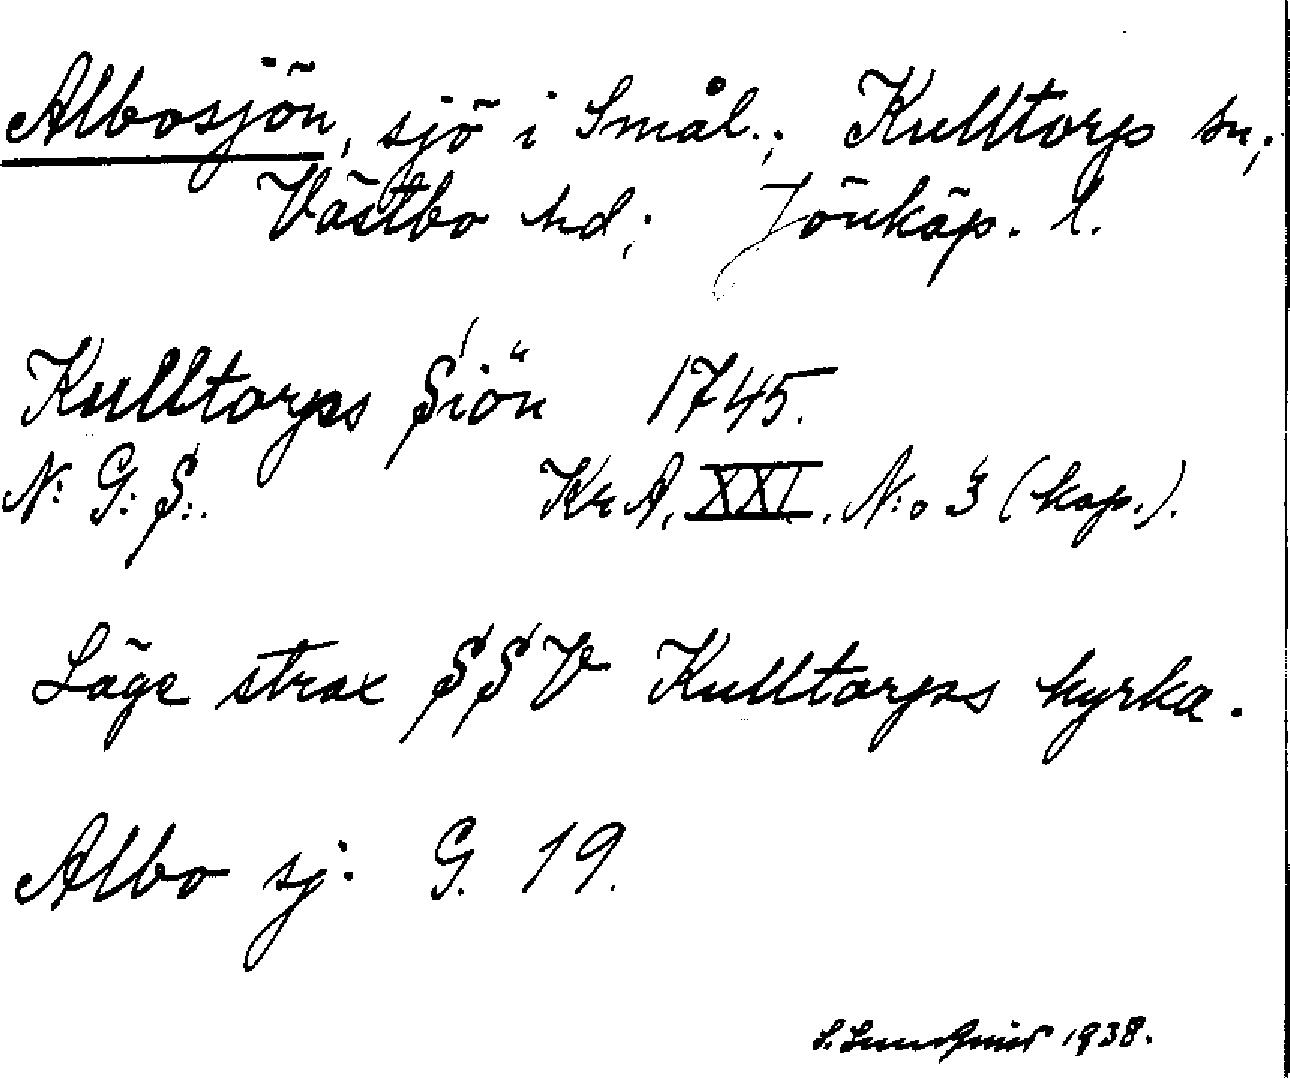 Albosjön, sjö i Smål.; Kulltorp sn;
Västbo hd; Jönköp. l.
Kulltorps Siön 1745.
N: G: S:. Kr A. XXI. N:o 3 (kop.).
Läge strax SSV Kulltorps kyrka.
Albo sj. G. 19.
S. Lundqvist 1938.